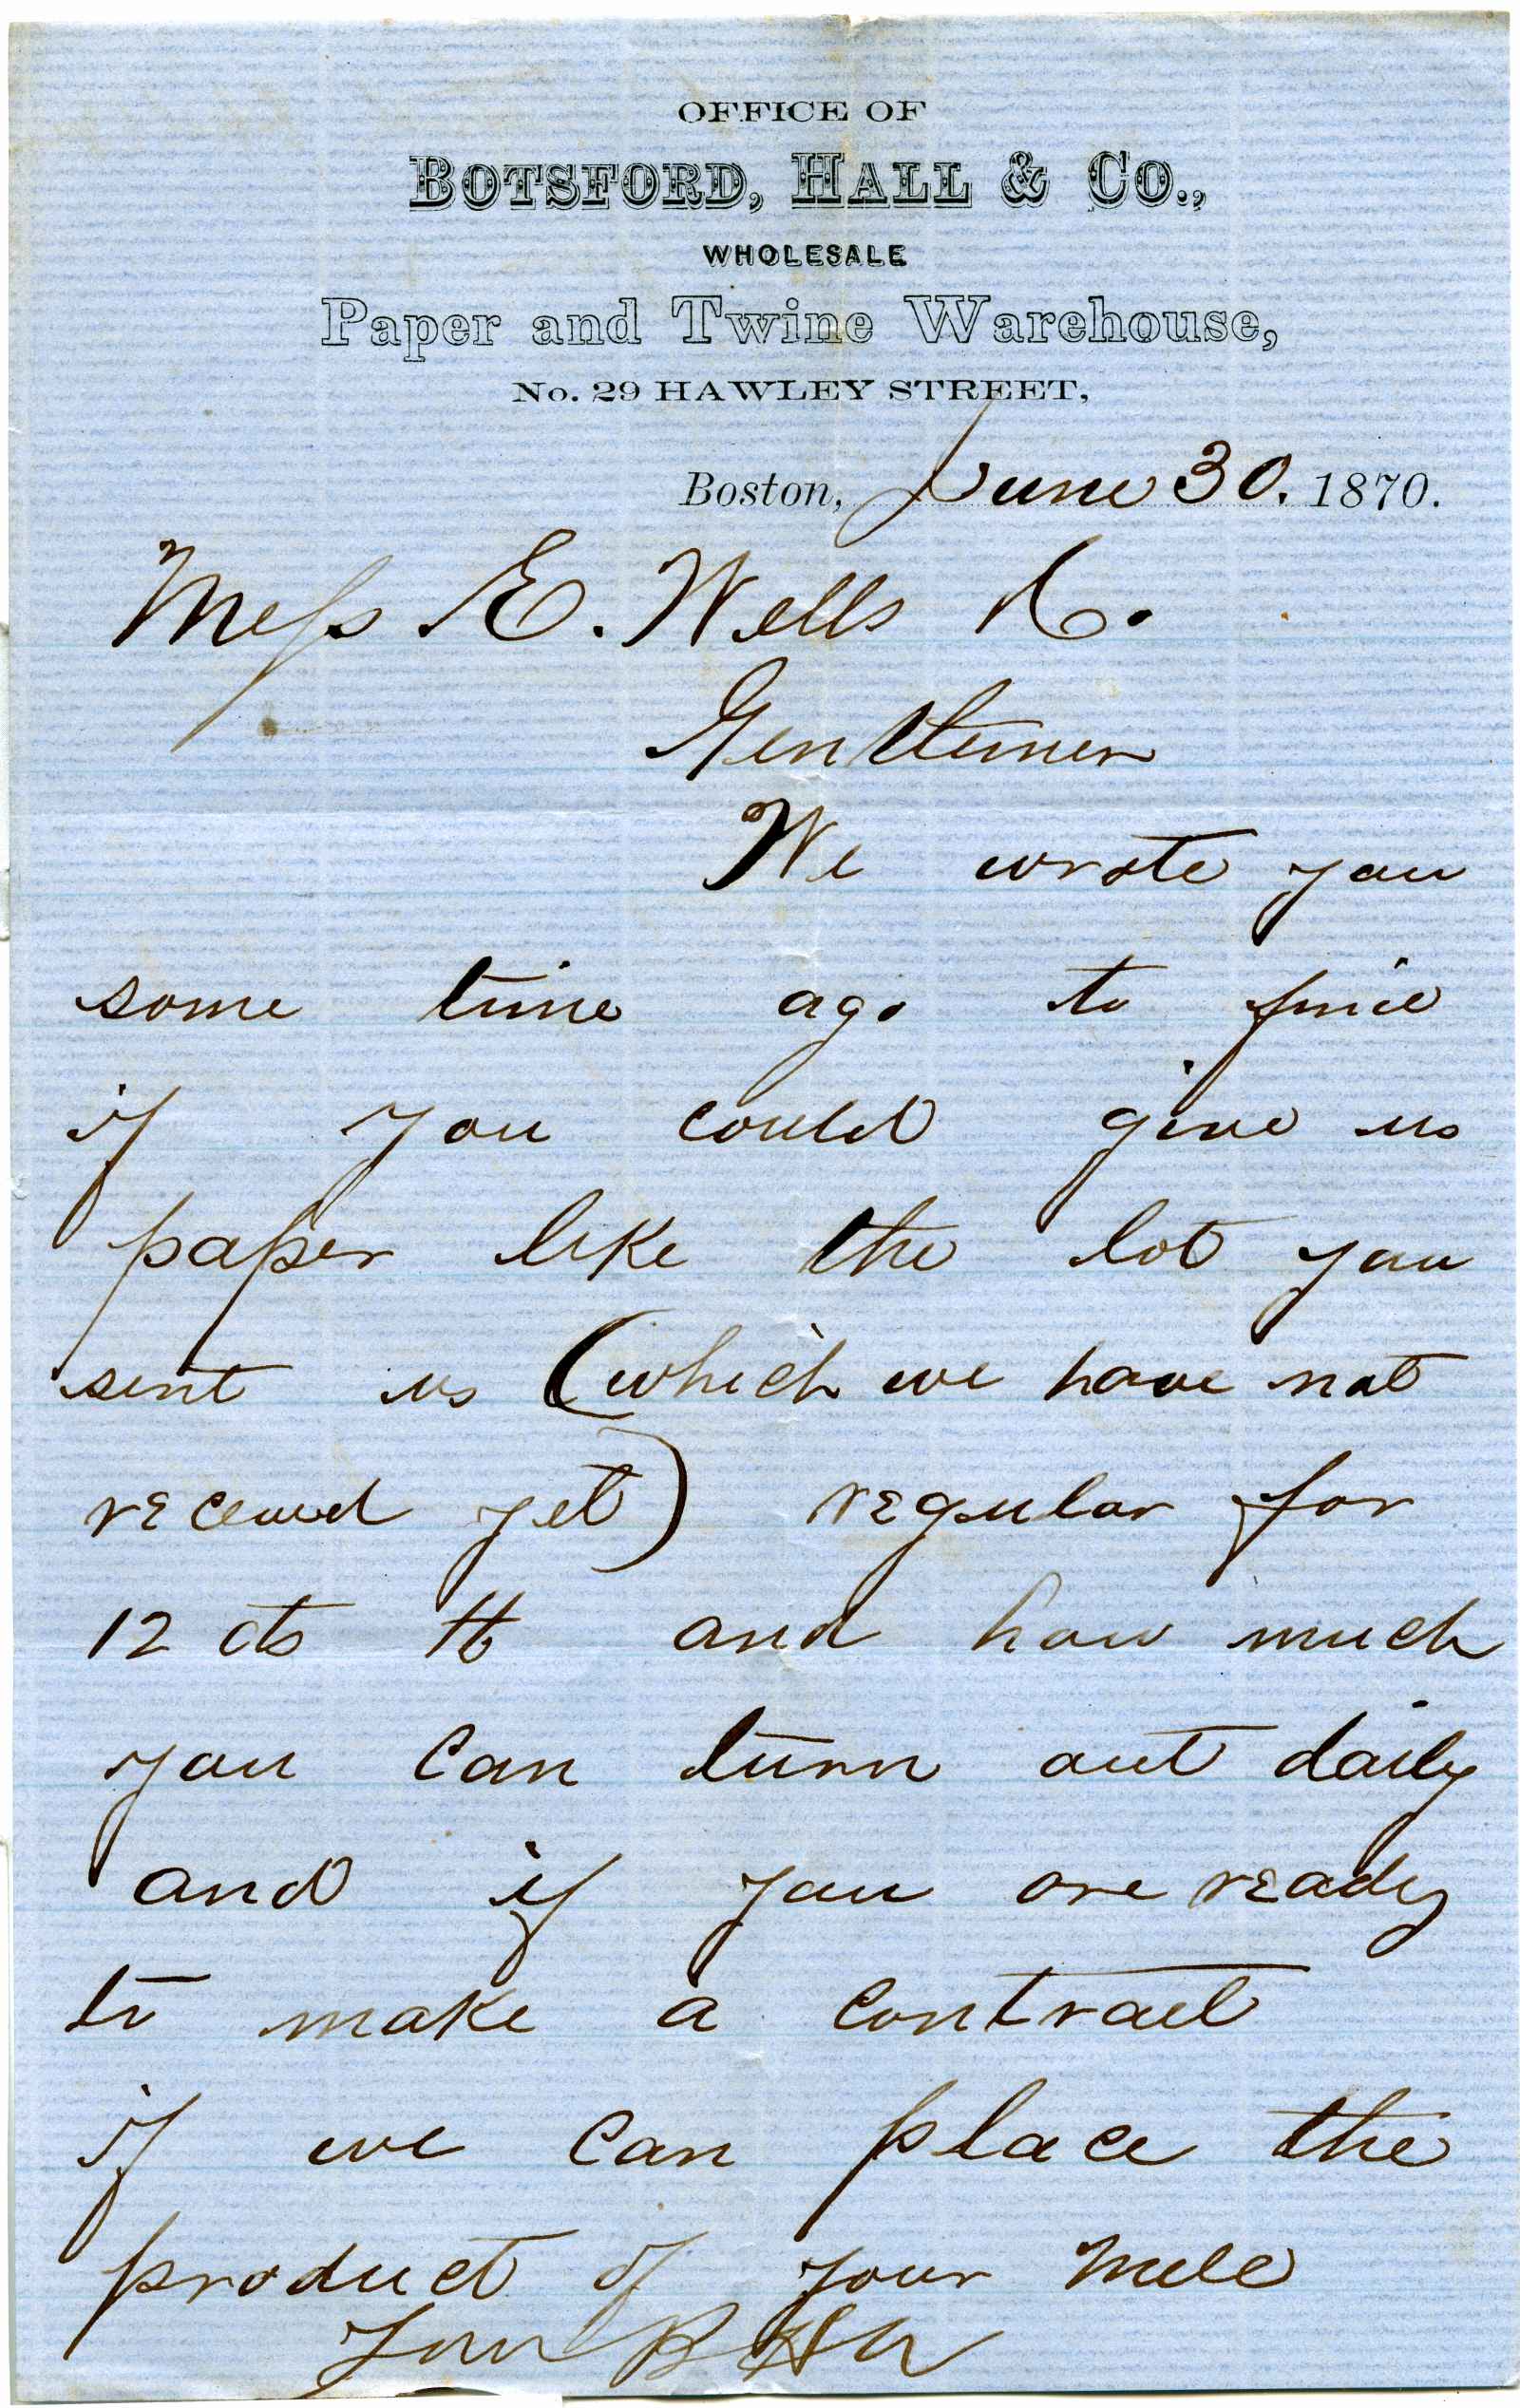 OFFICE OF
BOTSFORD, HALL & CO.,
WHOLESALE
Paper and Twine Warehouse,
No. 29 HAWLEY STREET,
Boston, June 30. 1870.
Mess E. Wells & Co.
Gentlemen
We wrote you
some time ago to
if you could give us
paper like the lot you
sent us (which we have not
received yet) regular for
12 cts lb and how much
you can turn out daily
and if you are ready
to make a contract
if we can place the
product of your mill
Yours B H & Co